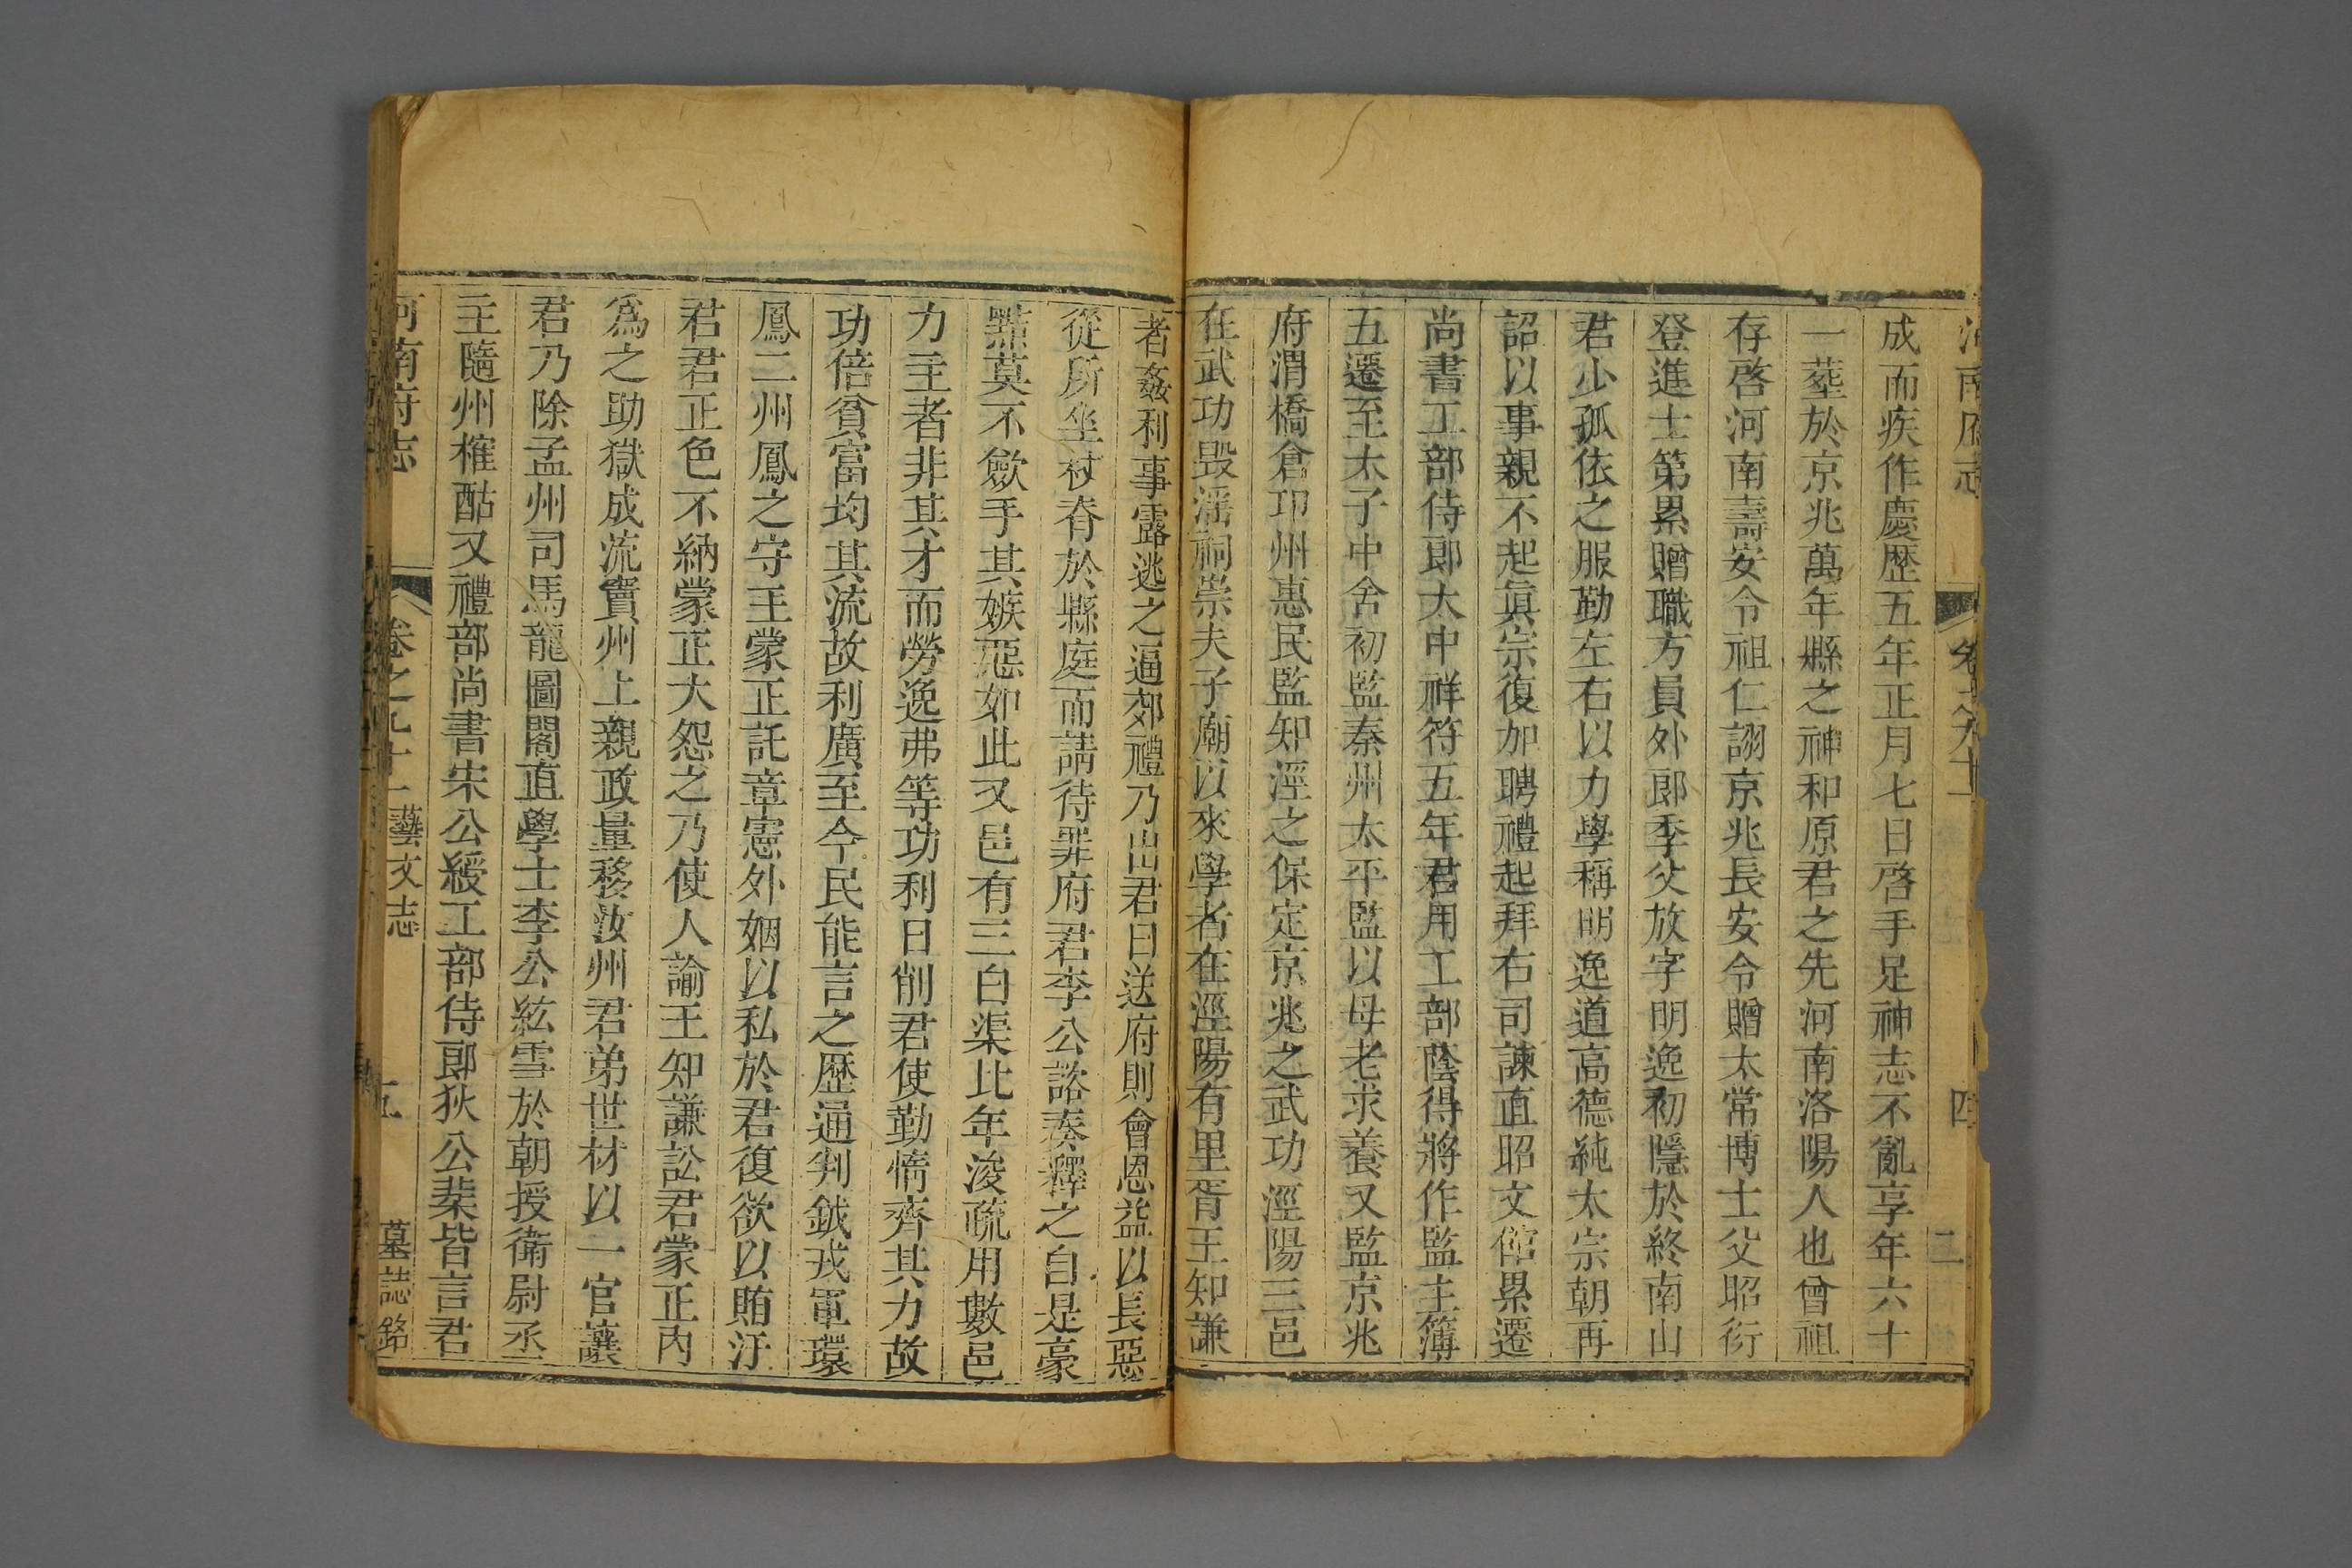 成而疾作慶歷五年正月七日啓手足神志不亂享年六十
一塟於京兆萬年縣之神和原君之先河南洛陽人也曾祖
存啓河南壽安令祖仁詡京兆長安令贈太常博士父昭衍
登進士第累贈職方員外郎季父放字明逸初隱於終南山
君少孤依之服勤左右以力學稱明逸道高德純太宗朝再
詔以事親不起眞宗復加聘禮起拜右司諫直昭文館累遷
尚書工部侍郎大中祥符五年君用工部蔭得將作監主簿
五遷至太子中舍初監秦州太平監以母老求養又監京兆
府渭橋倉卭州惠民監知涇之保定京兆之武功涇陽三邑
在武功毀淫祠崇夫子廟以來學者在涇陽有里胥王知謙
者姦利事露逃之逼郊禮乃出君曰送府則會恩益以長惡
從所坐杖脊於縣庭而請待罪府君李公諮奏釋之自是豪
黠莫不歛手其嫉惡如此又邑有三白渠比年浚疏用數邑
力主者非其才而勞逸弗等功利日削君使勤惰齊其力故
功倍貧富均其流故利廣至今民能言之歷通判鋮戎軍環
鳳二州鳳之守王蒙正託章憲外姻以私於君復欲以賄汙
君君正色不納蒙正大怨之乃使人諭王知謙訟君蒙正內
爲之助獄成流竇州上親政量移汝州君弟世材以一官讓
君乃除孟州司馬龍圖閣直學士李公紘雪於朝授衛尉丞
主隨州榷酤又禮部尚書宋公綬工部侍郎狄公棐皆言君
河南府志 卷之九十一藝文志 五 墓誌銘